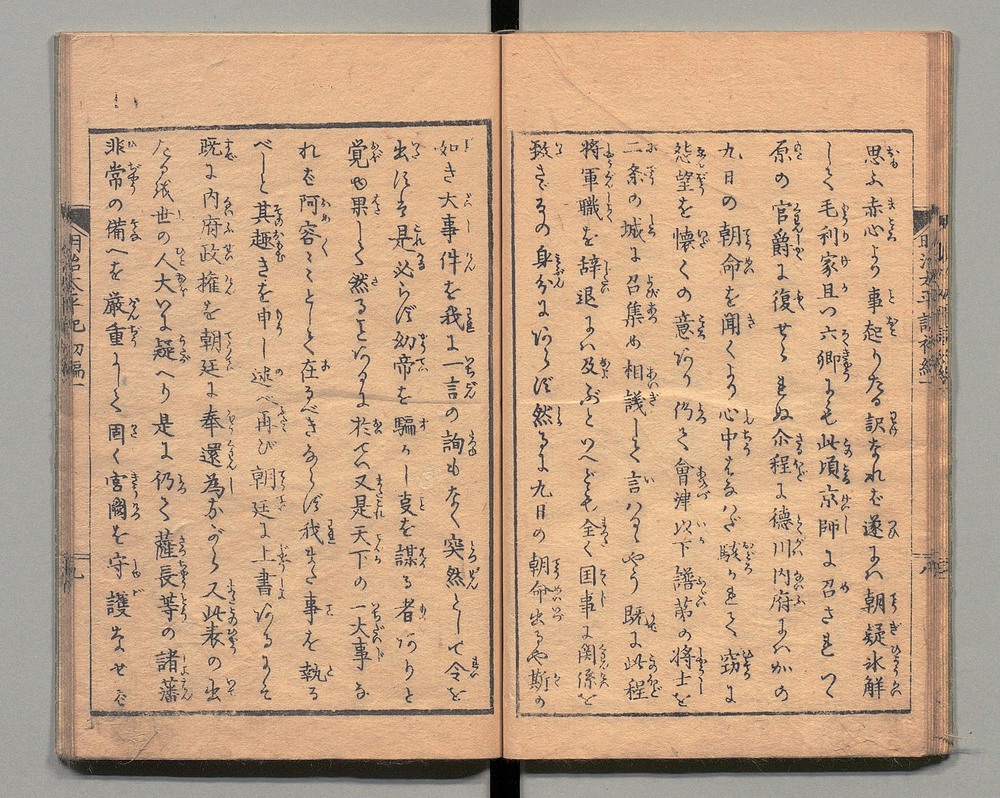 思ふ赤心より事起りたる訳なれば遂には朝疑氷解
して毛利家且つ六卿にも此頃京師に召されつ
原の官爵に復せられぬ介程に徳川内府にはかの
九日の朝命を聞くより心中はなはだ駭かれて窃に
怨望を懐くの意あり仍て會津以下譜第の将士を
二条の城に召集め相議して言はるゝやう既に此程
将軍職を辞退に及ぶといへども全く国事に関係を
致さゞるの身分にあらず然るに九日の朝命出るや斯の
如き大事件を我に一言の詢もなく突然として令を
出すは是必らず幼帝を騙かし事を謀る者ありと
覚ゆ果して然ることあるに於ては又是天下の一大事な
れば阿容々々として在るべきならず我また事を執る
べしと其趣きを申し述べ再び朝廷に上書あるにぞ
既に内府政権を朝廷に奉還為ながら又此表の出
たる故世の人大いに疑へり是に仍て薩長等の諸藩
非常の備へを厳重にして固く宮闕を守護なせば
明治太平記初編一
九
明治太平記初編一
八